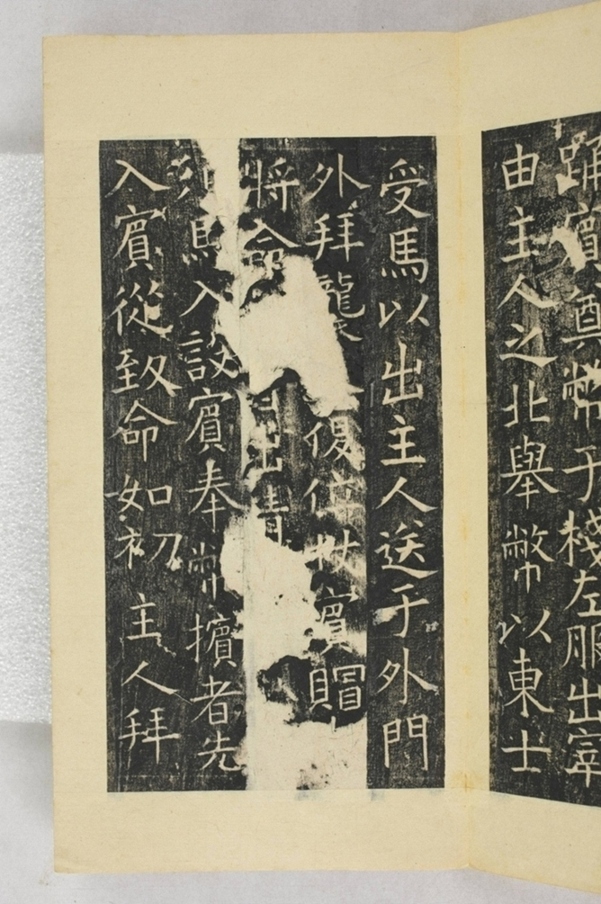 踊賓奠幣于棧左服出宰
由主人之北舉幣以東士
受馬以出主人送于外門
外拜襲復位杖賓賵
將命者出請
馬入設賓奉幣擯者先
入賓從致命如初主人拜